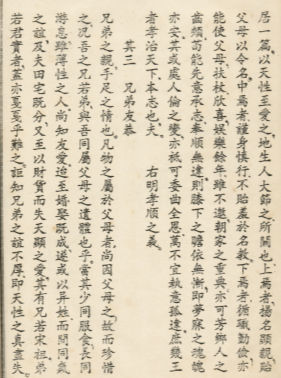 居一篇以天性至愛之地生人大節之所關也上焉者揚名顯親貽
父母以令名中焉者謹身慎行不貽羞於名教下焉者循職勤儉亦
能使父母扶杖欣喜娛樂餘年雖不邀朝家之重典亦可芳鄉人之
齒頰苟能先意承志奉順無違則膝下之瞻依無慚即夢寐之魂魄
亦安其或處人倫之變亦祗可委曲全恩萬不宜執意孤違庶幾王
者孝治天下本志也夫 右明孝順之義
其三 兄弟友恭
兄弟之親手足之情也凡物之屬於父母者尚因父母之故而珍惜
之况吾之兄若弟與吾同屬父母之遺體也乎當其少同服食長同
游息雖薄性之人尚知友愛迨至婚娶既成遂或以異姓而間同氣
之誼及夫田宅既分又至以財貨而失天顯之愛其有兄若宋祖弟
若君實者蓋亦戛戛乎難之詎知兄弟之誼不厚即天性之真盡失